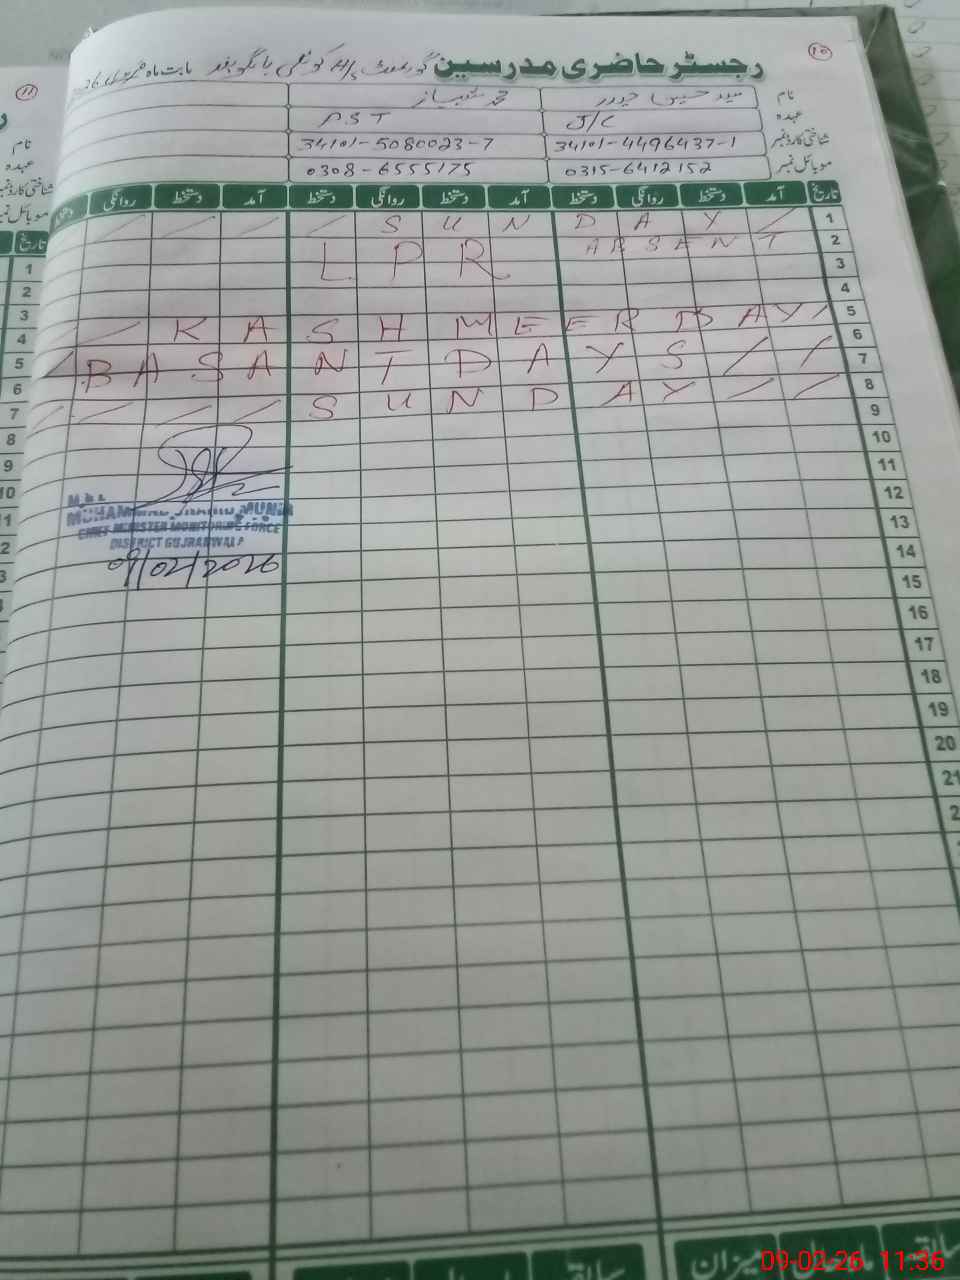 10
رجسٹر حاضری مدرسین گورنمنٹ H/S کوٹلی بابت ماہ
نام
محمد شہباز
عہدہ J/C
PST
شناختی کارڈ نمبر 34101-4496437-1
34101-5080023-7
موبائل نمبر 0315-6412152
0308-6555175
تاریخ آمد دستخط روانگی دستخط آمد دستخط روانگی دستخط آمد دستخط روانگی
1 SUNDAY
2 ABSENT
LPR
3
4
5 KASHMEER DAY
6
7 BASANT DAYS
8 SUNDAY
9
10
11
12
13
14
15
16
17
18
19
20
21
CHIEF MINISTER MONITORING FORCE
DISTRICT GUJRANWALA
09/02/2026
میزان
سابقہ
11
نام
عہدہ
شناختی کارڈ نمبر
موبائل نمبر
تاریخ
1
2
3
4
5
6
7
8
9
10
09-02-26 11:36